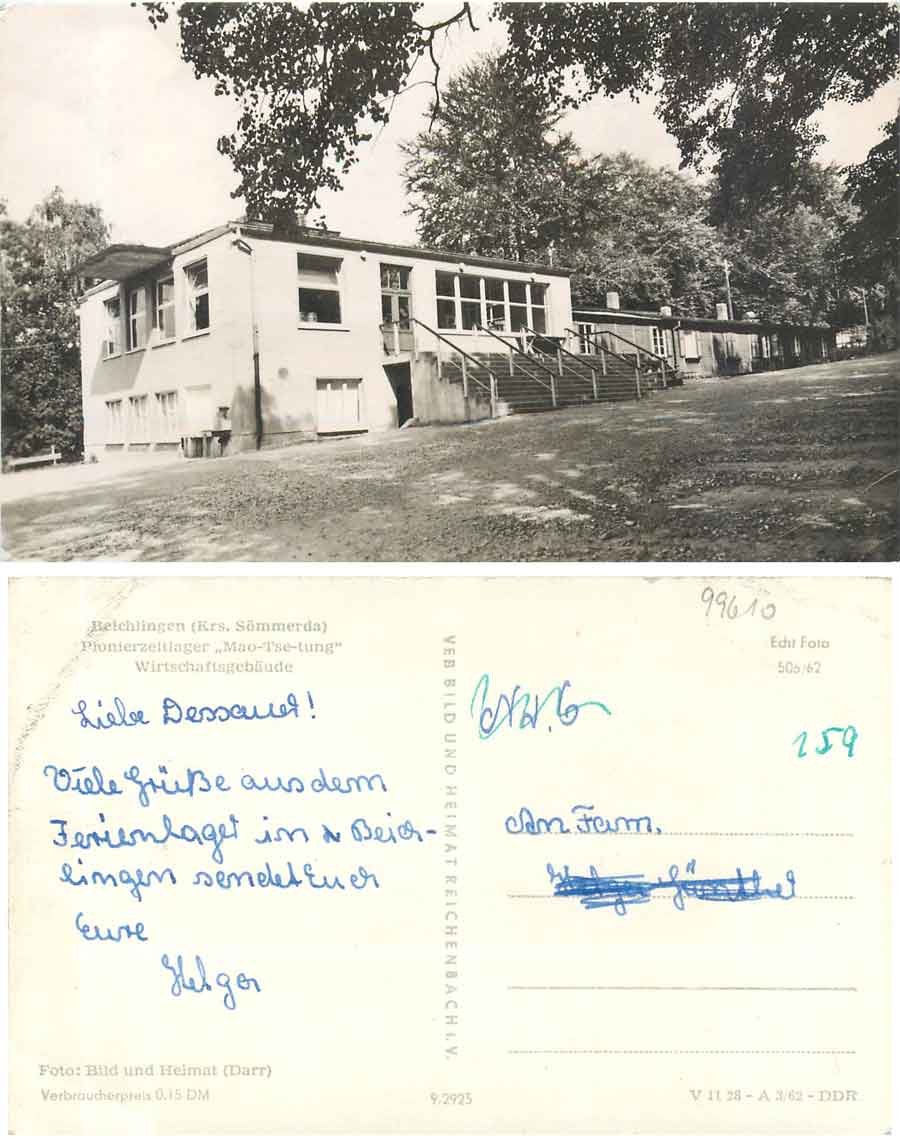 99610
Beichlingen (Krs. Sömmerda)
Pionierzeltlager „Mao-Tse-tung"
Wirtschaftsgebäude
Echt Foto
506/62
Liebe Dessauer!
159
Viele Grüße aus dem
Ferienlager in Beich-
lingen sendet Euch
Eure
Helga
VEB BILD UND HEIMAT REICHENBACH i. V.
An Fam.
Foto: Bild und Heimat (Darr)
Verbraucherpreis 0,15 DM
9/2925
V 11 28 - A 3/62 - DDR